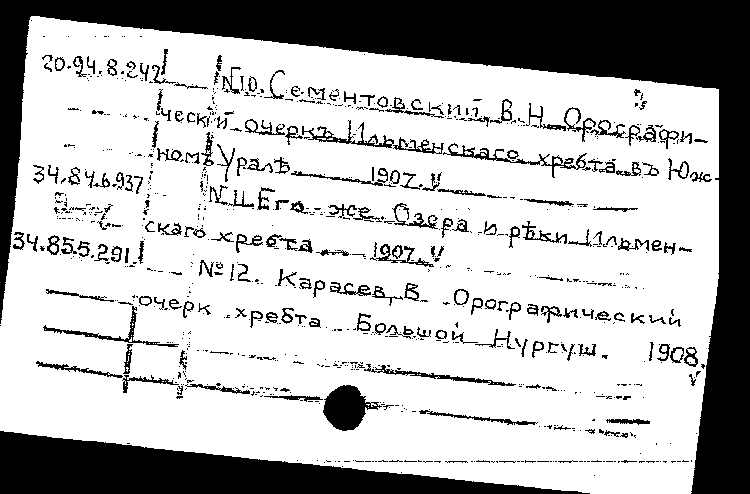 20.94.8.242 N10. Сементовский, В.Н. Орографи-
ческій очеркъ Ильменскаго хребта въ Юж-
номъ Уралѣ. 1907. V
34.84.6.937 N 11. Его-же. Озера и рѣки Ильмен-
скаго хребта. 1907. V
34.85.5.291. №12. Карасев, В. Орографический
очерк хребта Большой Нургуш. 1908.
V